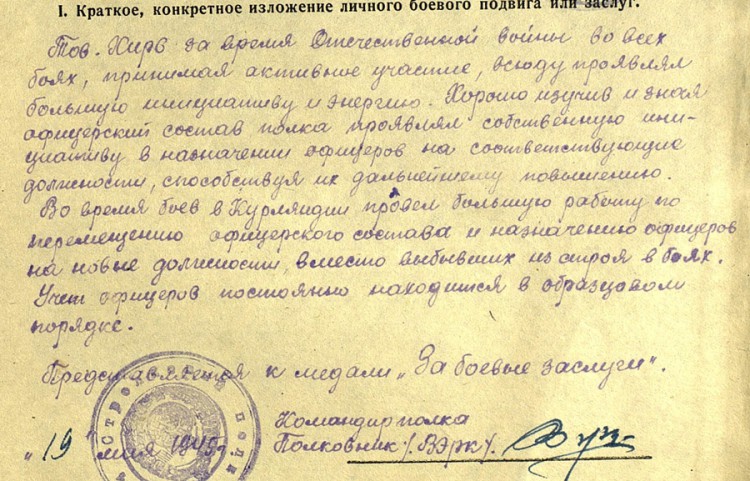 I. Краткое, конкретное изложение личного боевого подвига или заслуг.
Тов. Хирв за время Отечественной войны во всех
боях, принимая активное участие, всюду проявлял
большую инициативу и энергию. Хорошо изучив и зная
офицерский состав полка проявлял собственную ини-
циативу в назначении офицеров на соответствующие
должности, способствуя их дальнейшему повышению.
Во время боев в Курляндии провел большую работу по
перемещению офицерского состава и назначению офицеров
на новые должности, вместо выбывших из строя в боях.
Учет офицеров постоянно находится в образцовом
порядке.
Представляется к медали „За боевые заслуги".
Командир полка
"19" мая 1945г Полковник /. ВЭРК/.